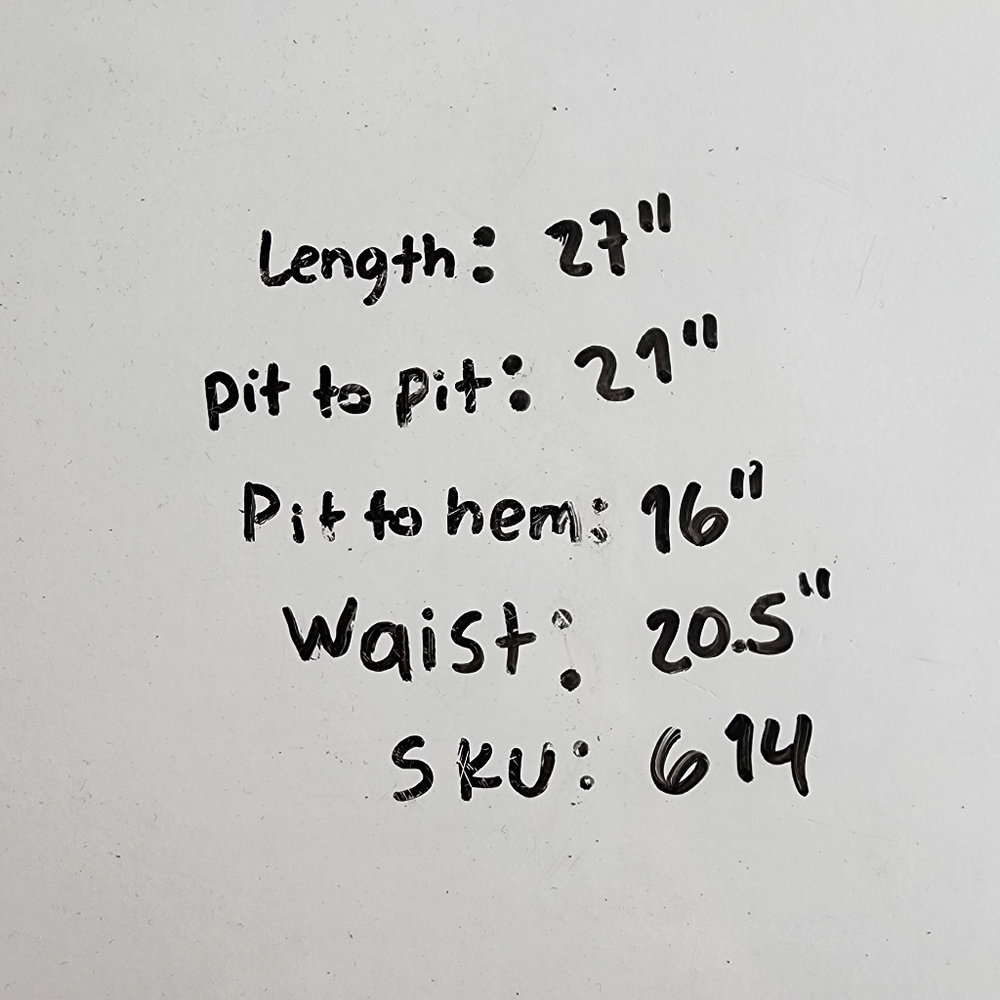 Length: 27"
pit to pit: 21"
Pit to hem: 16"
Waist: 20.5"
SKU: 614